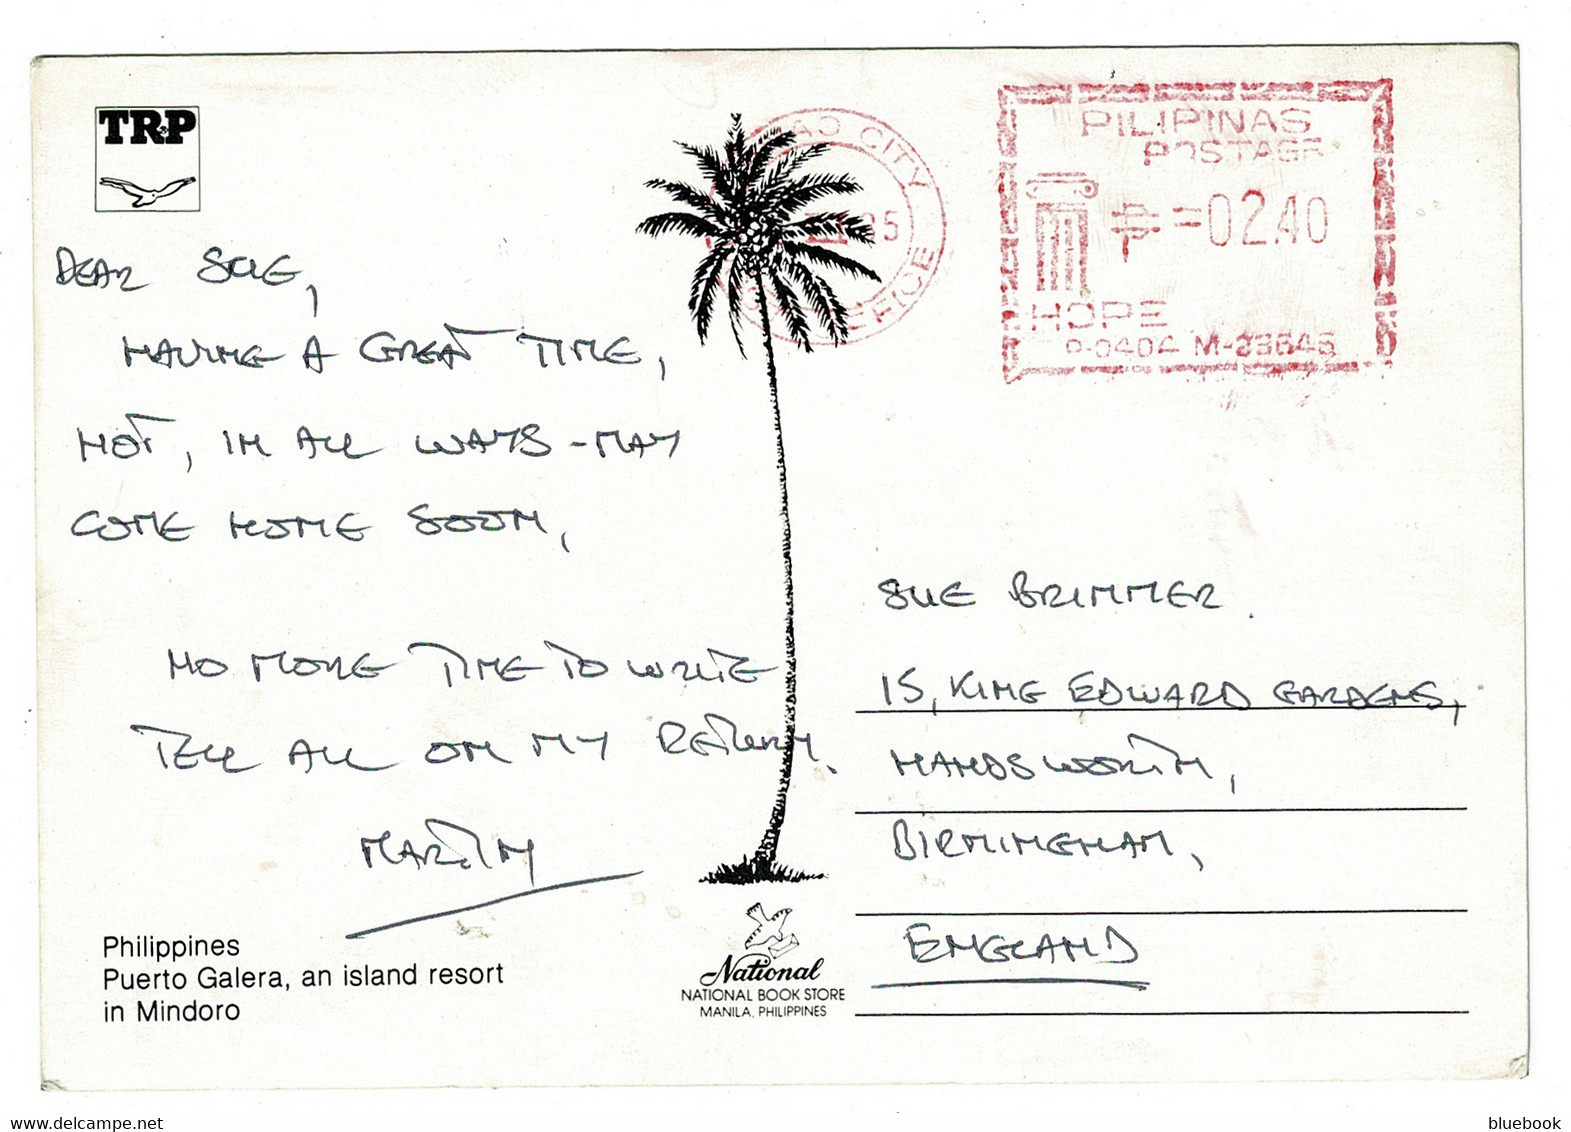 TRP
DEAR SUE,
HAVING A GREAT TIME,
HOT, IN ALL WAYS - MAY
COME HOME SOON,
NO MORE TIME TO WRITE
TELL ALL ON MY RETURN.
MARTIN
Philippines
Puerto Galera, an island resort
in Mindoro
National
NATIONAL BOOK STORE
MANILA, PHILIPPINES
CITY
85
OFFICE
PILIPINAS
POSTAGE
₱=02.40
HOPE
P-0404 M-23646
SUE BRIMMER.
15, KING EDWARD GARDENS,
HANDSWORTH,
BIRMINGHAM,
ENGLAND
bluebook